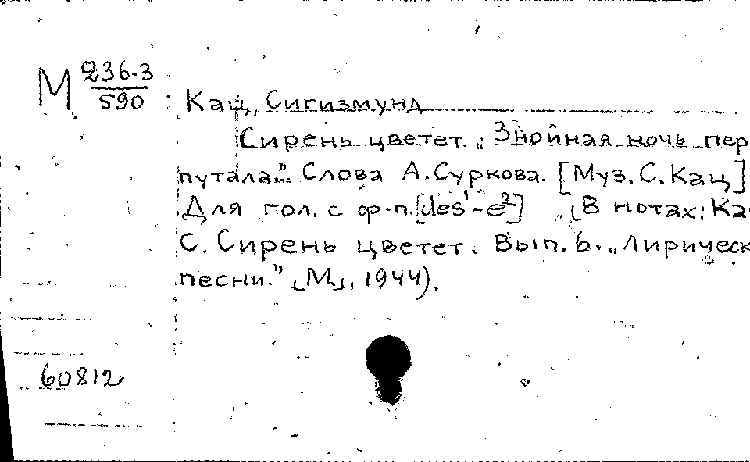 М 236-3
590
Кац, Сигизмунд
Сирень цветет. „Знойная ночь пер
путала". Слова А. Суркова. [Муз. С. Кац]
Для гол. с ф-п. [des¹-e²] (В нотах: Ка
С. Сирень цветет. Вып. 6. „Лирическ
песни." [М], 1944).
60812